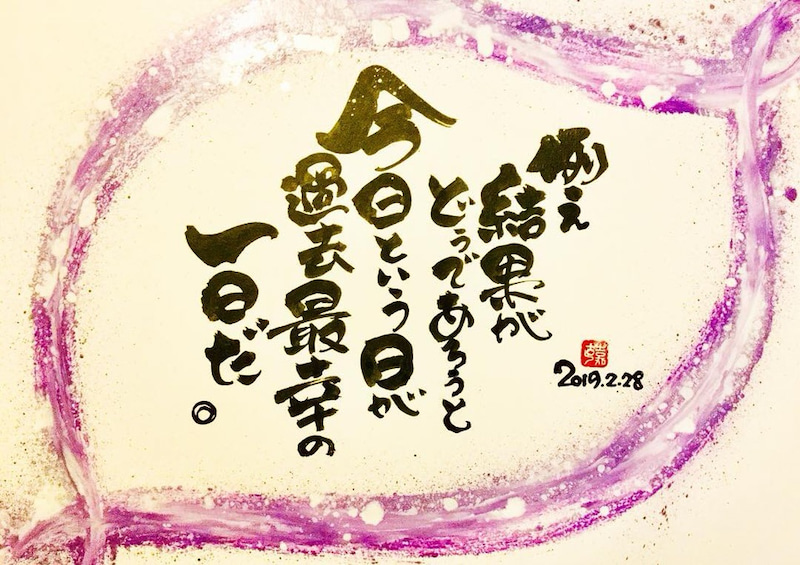 例え
結果が
どうであろうと
今日という日が
過去最幸の
一日だ。
2019.2.28